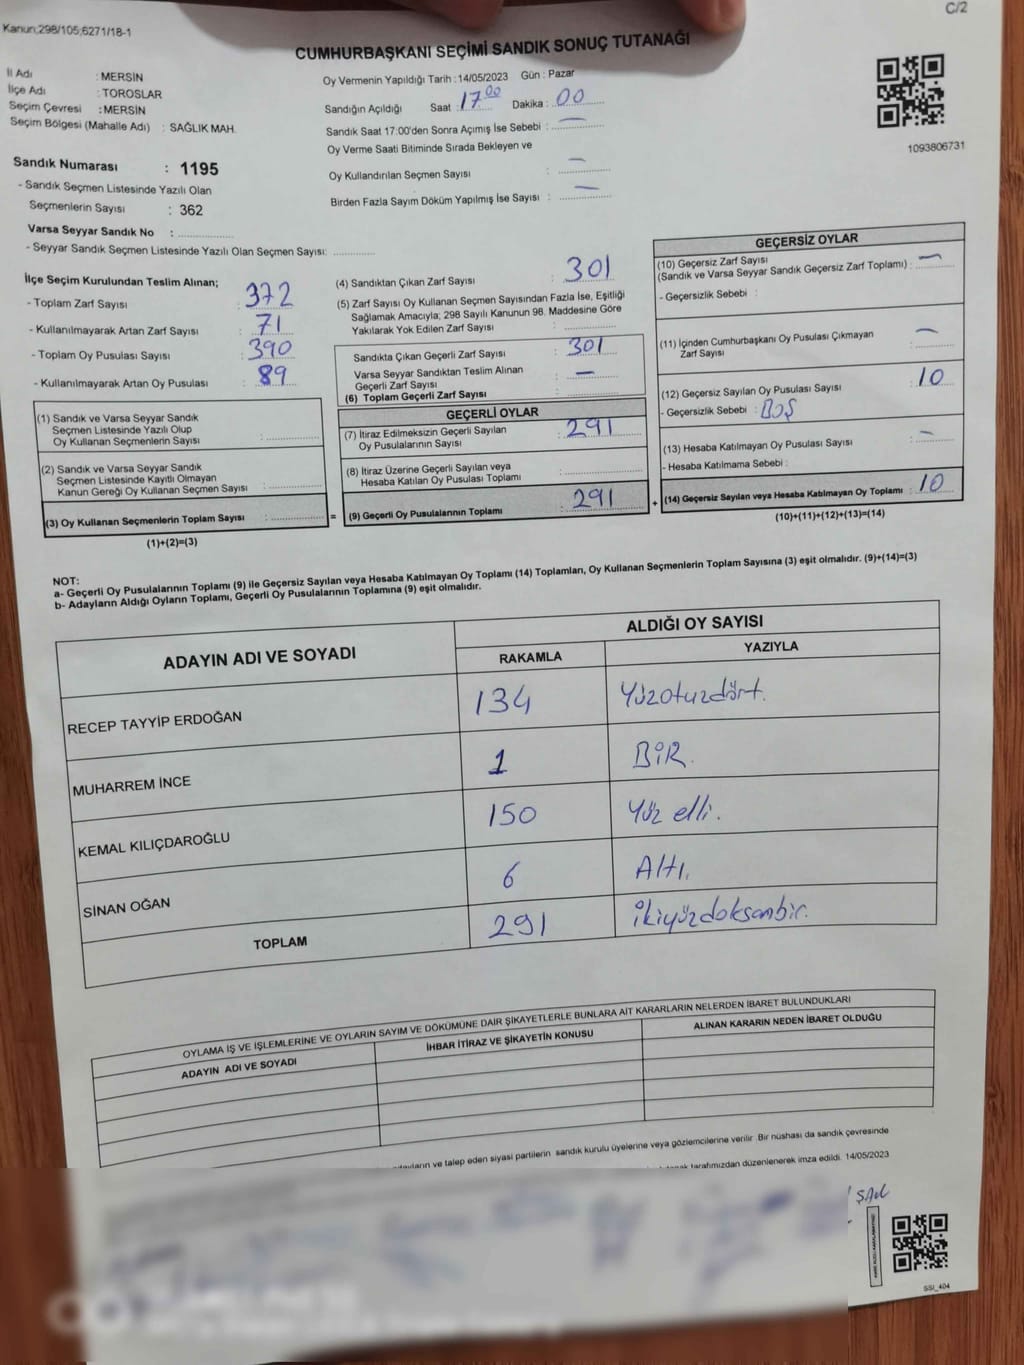 C/2
Kanun;298/105;6271/18-1
CUMHURBAŞKANI SEÇİMİ SANDIK SONUÇ TUTANAĞI
İl Adı : MERSİN
İlçe Adı : TOROSLAR
Seçim Çevresi : MERSİN
Seçim Bölgesi (Mahalle Adı) : SAĞLIK MAH.
Oy Vermenin Yapıldığı Tarih :14/05/2023 Gün : Pazar
Sandığın Açıldığı Saat : 17 00 Dakika : 00
Sandık Saat 17:00'den Sonra Açımış İse Sebebi : —
Oy Verme Saati Bitiminde Sırada Bekleyen ve
Oy Kullandırılan Seçmen Sayısı : —
Birden Fazla Sayım Döküm Yapılmış İse Sayısı : —
1093806731
Sandık Numarası : 1195
- Sandık Seçmen Listesinde Yazılı Olan
Seçmenlerin Sayısı : 362
Varsa Seyyar Sandık No :
- Seyyar Sandık Seçmen Listesinde Yazılı Olan Seçmen Sayısı:
İlçe Seçim Kurulundan Teslim Alınan;
- Toplam Zarf Sayısı : 372
- Kullanılmayarak Artan Zarf Sayısı : 71
- Toplam Oy Pusulası Sayısı : 390
- Kullanılmayarak Artan Oy Pusulası : 89
(1) Sandık ve Varsa Seyyar Sandık
Seçmen Listesinde Yazılı Olup
Oy Kullanan Seçmenlerin Sayısı :
(2) Sandık ve Varsa Seyyar Sandık
Seçmen Listesinde Kayıtlı Olmayan
Kanun Gereği Oy Kullanan Seçmen Sayısı :
(3) Oy Kullanan Seçmenlerin Toplam Sayısı : =
(1)+(2)=(3)
(4) Sandıktan Çıkan Zarf Sayısı : 301
(5) Zarf Sayısı Oy Kullanan Seçmen Sayısından Fazla İse, Eşitliği
Sağlamak Amacıyla; 298 Sayılı Kanunun 98. Maddesine Göre
Yakılarak Yok Edilen Zarf Sayısı :
Sandıkta Çıkan Geçerli Zarf Sayısı : 301
Varsa Seyyar Sandıktan Teslim Alınan
Geçerli Zarf Sayısı : —
(6) Toplam Geçerli Zarf Sayısı :
GEÇERLİ OYLAR
(7) İtiraz Edilmeksizin Geçerli Sayılan
Oy Pusulalarının Sayısı : 291
(8) İtiraz Üzerine Geçerli Sayılan veya
Hesaba Katılan Oy Pusulası Toplamı :
(9) Geçerli Oy Pusulalarının Toplamı : 291 +
GEÇERSİZ OYLAR
(10) Geçersiz Zarf Sayısı
(Sandık ve Varsa Seyyar Sandık Geçersiz Zarf Toplamı) : —
- Geçersizlik Sebebi :
(11) İçinden Cumhurbaşkanı Oy Pusulası Çıkmayan
Zarf Sayısı : —
(12) Geçersiz Sayılan Oy Pusulası Sayısı : 10
- Geçersizlik Sebebi : BOŞ
(13) Hesaba Katılmayan Oy Pusulası Sayısı : —
- Hesaba Katılmama Sebebi :
(14) Geçersiz Sayılan veya Hesaba Katılmayan Oy Toplamı : 10
(10)+(11)+(12)+(13)=(14)
NOT:
a- Geçerli Oy Pusulalarının Toplamı (9) ile Geçersiz Sayılan veya Hesaba Katılmayan Oy Toplamı (14) Toplamları, Oy Kullanan Seçmenlerin Toplam Sayısına (3) eşit olmalıdır. (9)+(14)=(3)
b- Adayların Aldığı Oyların Toplamı, Geçerli Oy Pusulalarının Toplamına (9) eşit olmalıdır.
ADAYIN ADI VE SOYADI
ALDIĞI OY SAYISI
RAKAMLA YAZIYLA
RECEP TAYYİP ERDOĞAN 134 Yüzotuzdört.
MUHARREM İNCE 1 BİR.
KEMAL KILIÇDAROĞLU 150 Yüz elli.
SİNAN OĞAN 6 Altı.
TOPLAM 291 ikiyüzdoksanbir.
OYLAMA İŞ VE İŞLEMLERİNE VE OYLARIN SAYIM VE DÖKÜMÜNE DAİR ŞİKAYETLERLE BUNLARA AİT KARARLARIN NELERDEN İBARET BULUNDUKLARI
ADAYIN ADI VE SOYADI
İHBAR İTİRAZ VE ŞİKAYETİN KONUSU
ALINAN KARARIN NEDEN İBARET OLDUĞU
ve talep eden siyasi partilerin sandık kurulu üyelerine veya gözlemcilerine verilir. Bir nüshası da sandık çevresinde
tarafımızdan düzenlenerek imza edildi. 14/05/2023
SSI_404